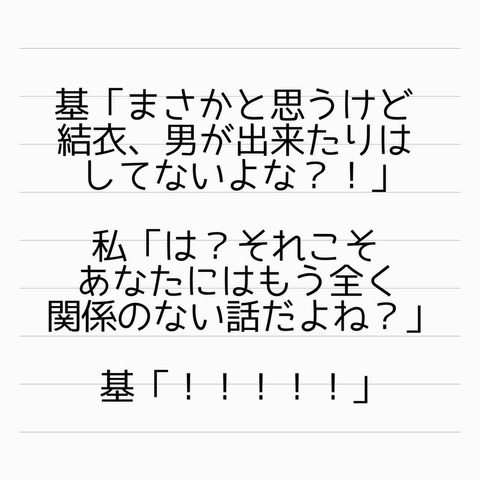 基「まさかと思うけど
結衣、男が出来たりは
してないよな？！」
私「は？それこそ
あなたにはもう全く
関係のない話だよね？」
基「！！！！！」